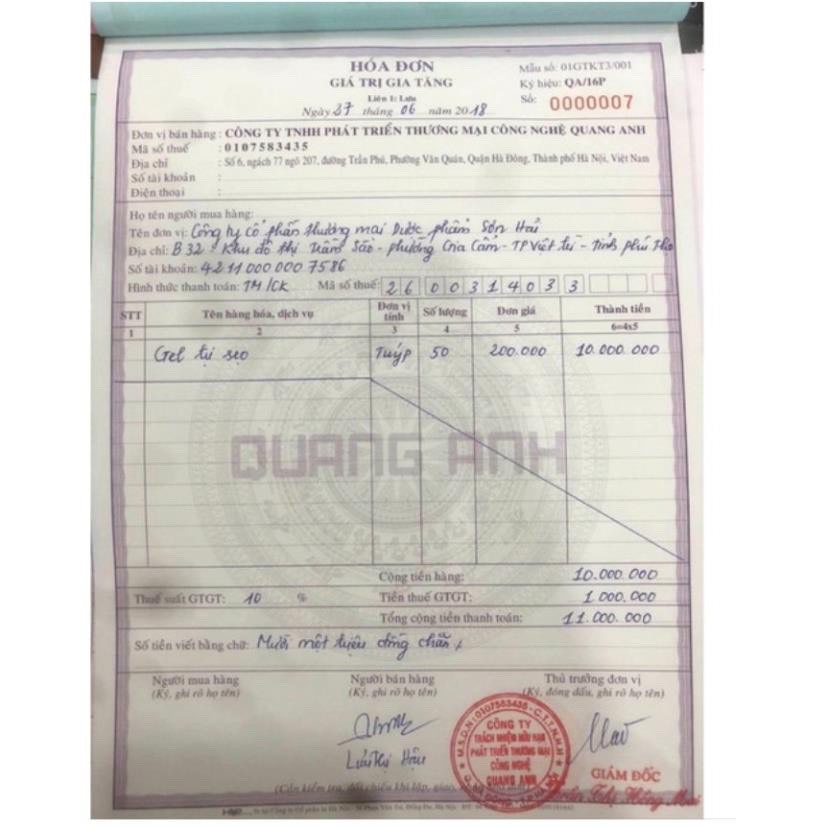 HÓA ĐƠN
GIÁ TRỊ GIA TĂNG
Liên 1: Lưu
Ngày 27 tháng 06 năm 2018
Mẫu số: 01GTKT3/001
Ký hiệu: QA/16P
Số: 0000007
Đơn vị bán hàng : CÔNG TY TNHH PHÁT TRIỂN THƯƠNG MẠI CÔNG NGHỆ QUANG ANH
Mã số thuế : 0107583435
Địa chỉ : Số 6, ngách 77 ngõ 207, đường Trần Phú, Phường Văn Quán, Quận Hà Đông, Thành phố Hà Nội, Việt Nam
Số tài khoản :
Điện thoại :
Họ tên người mua hàng:
Tên đơn vị: Công ty cổ phần thương mại Dược phẩm Sơn Hải
Địa chỉ: B32 - Khu đô thị Trầm Sào - phường Gia Cẩm - TP Việt Trì - Tỉnh Phú Thọ
Số tài khoản: 4211000 000 7586
Hình thức thanh toán: TM/CK Mã số thuế: 2600314033
STT Tên hàng hóa, dịch vụ Đơn vị tính Số lượng Đơn giá Thành tiền
1 2 3 4 5 6=4x5
Gel trị sẹo Tuýp 50 200.000 10.000.000
QUANG ANH
Cộng tiền hàng: 10.000.000
Thuế suất GTGT: 10 % Tiền thuế GTGT: 1.000.000
Tổng cộng tiền thanh toán: 11.000.000
Số tiền viết bằng chữ: Mười một triệu đồng chẵn
Người mua hàng Người bán hàng Thủ trưởng đơn vị
(Ký, ghi rõ họ tên) (Ký, ghi rõ họ tên) (Ký, đóng dấu, ghi rõ họ tên)
M.S.D.N: 0107583435 - C.T.T.N.H.H
CÔNG TY
TRÁCH NHIỆM HỮU HẠN
PHÁT TRIỂN THƯƠNG MẠI
CÔNG NGHỆ
QUANG ANH
Hậu
GIÁM ĐỐC
Thị Hồng Mai
(Cần kiểm tra, đối chiếu khi lập, giao,